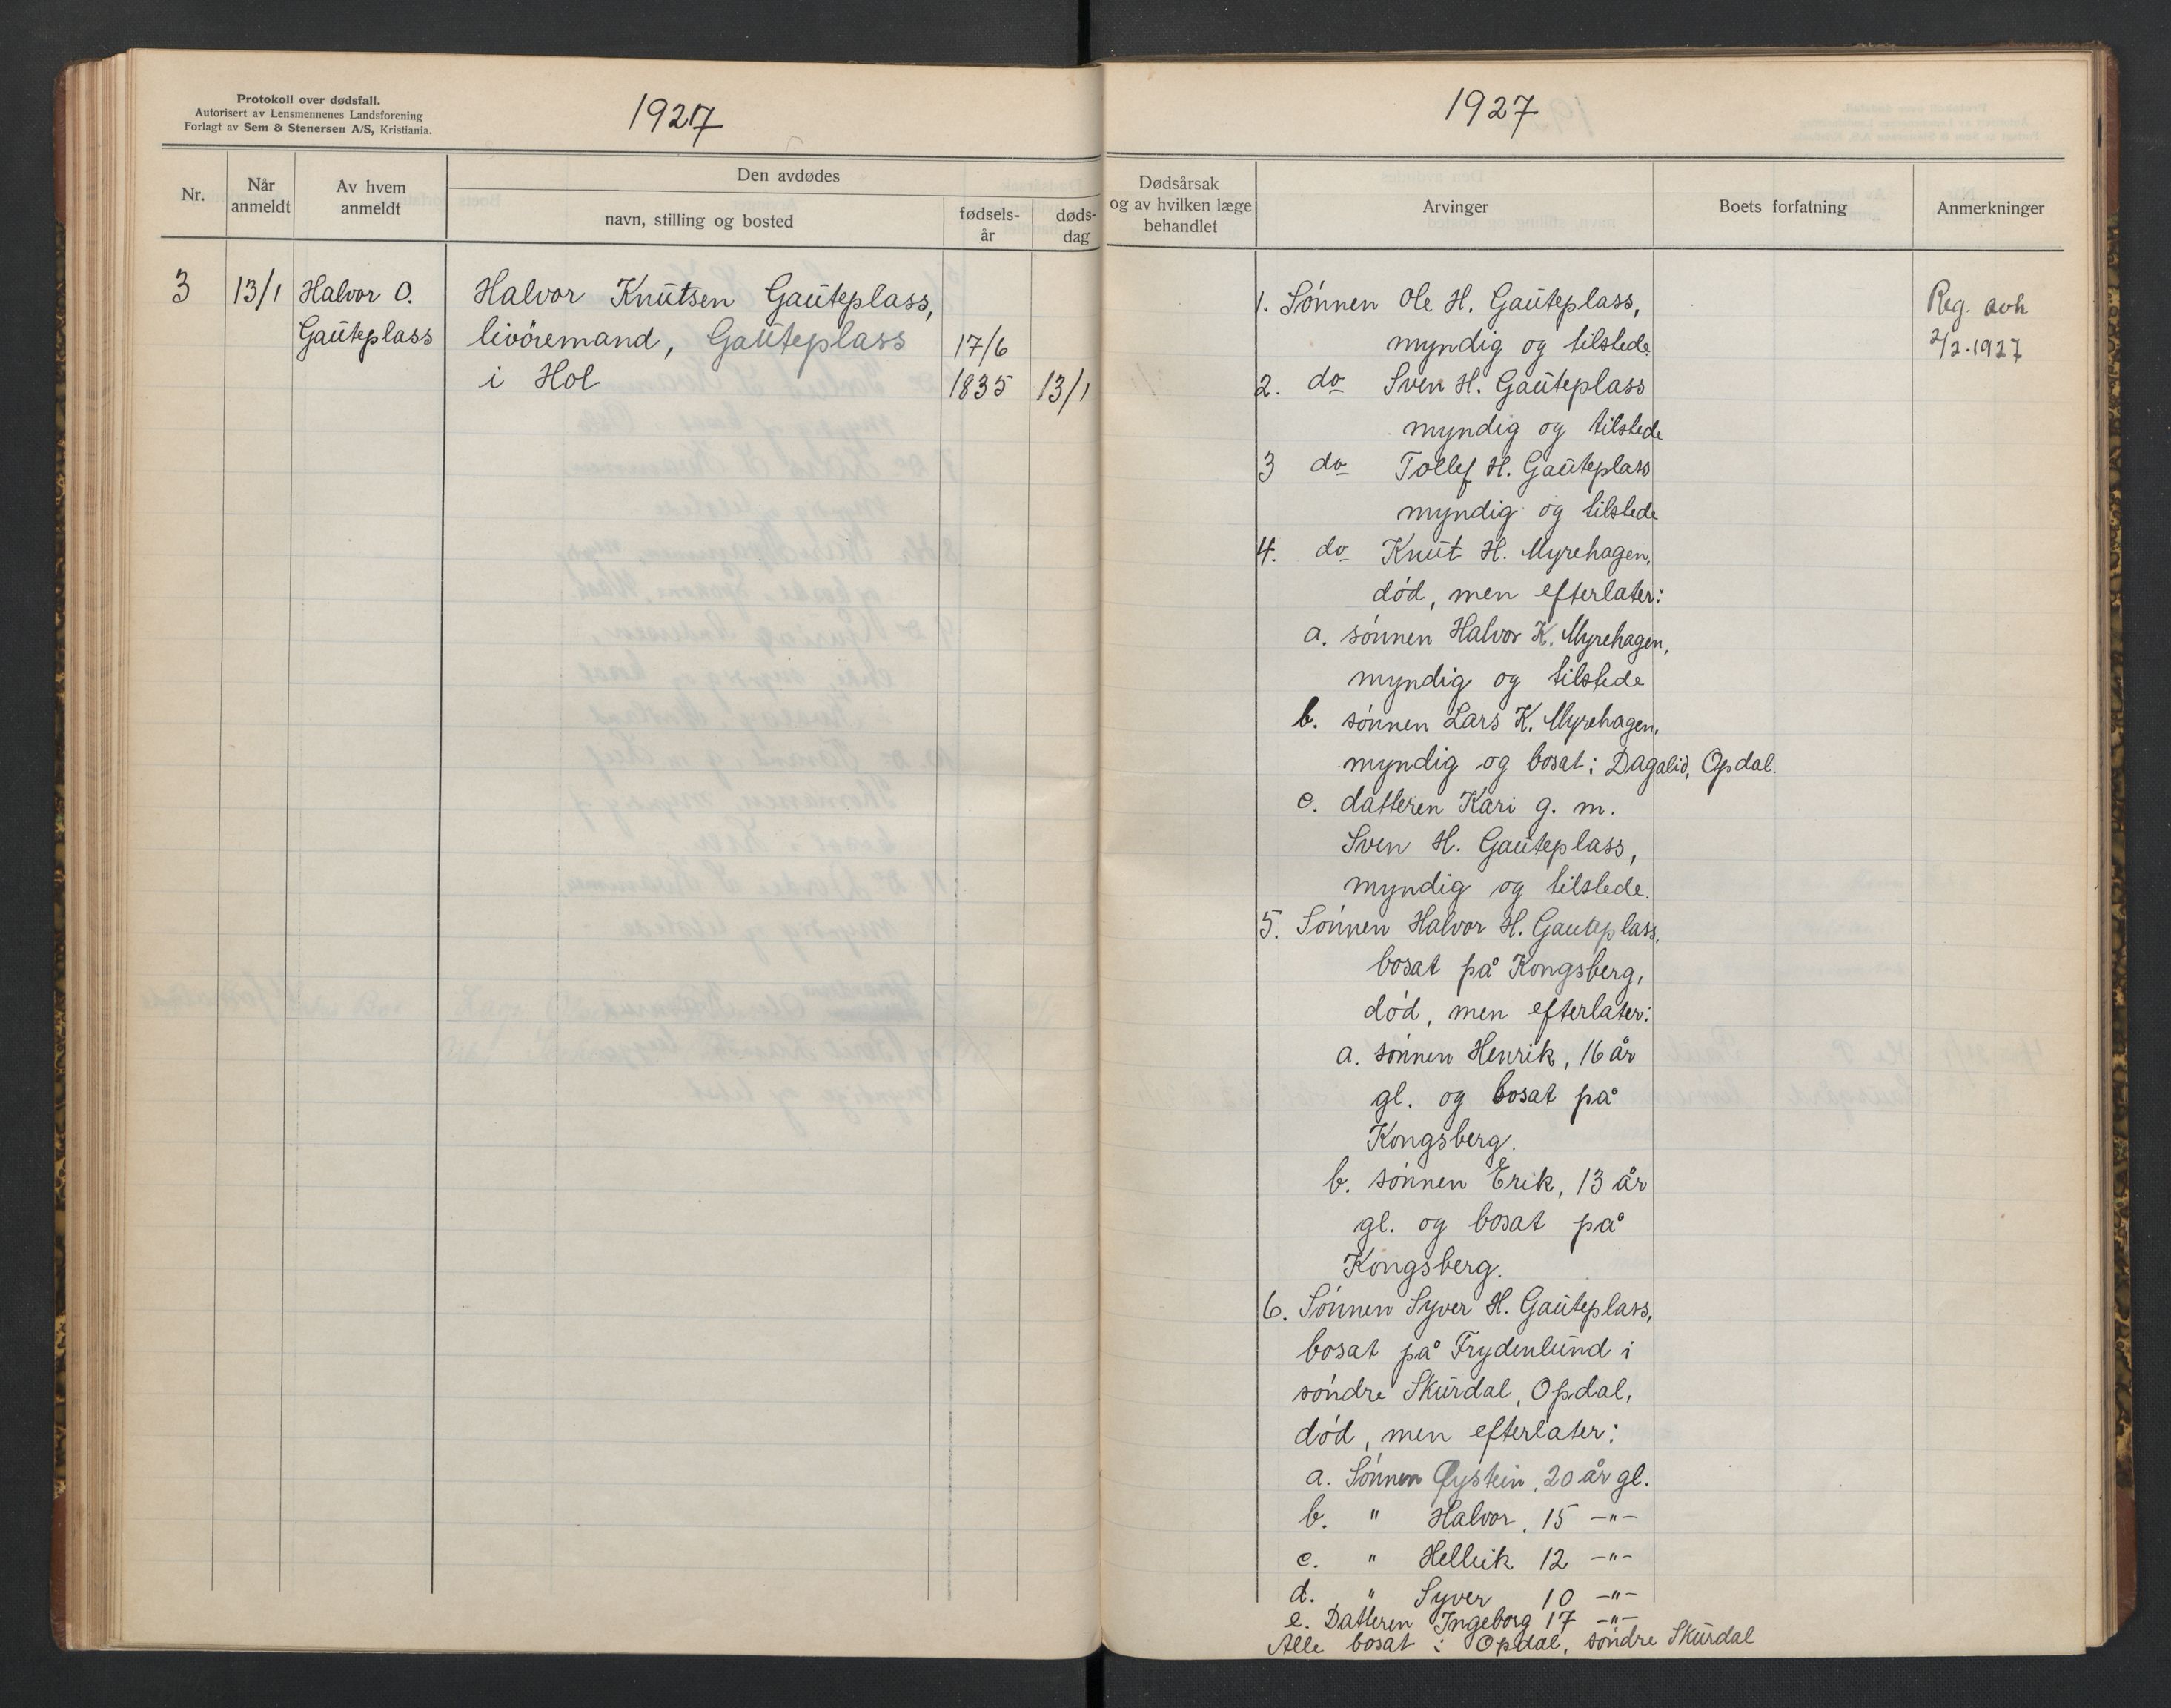 Protokoll over dødsfall.
Autorisert av Lensmennenes Landsforening
Forlagt av Sem & Stenersen A/S, Kristiania.
1927
Nr.
Når anmeldt
Av hvem anmeldt
Den avdødes
navn, stilling og bosted
fødsels-
år
døds-
dag
3
13/1
Halvor O.
Gauteplass
Halvor Knutsen Gauteplass,
livöremand, Gauteplass
i Hol
17/6
1835
13/1
1927
Dødsårsak
og av hvilken læge
behandlet
Arvinger
Boets forfatning
Anmerkninger
1. Sönnen Ole H. Gauteplass,
myndig og tilstede.
2. do Sven H. Gauteplass
myndig og tilstede
3 do Tollef H. Gauteplass
myndig og tilstede
4. do Knut H. Myrehagen,
död, men efterlater:
a. sönnen Halvor K. Myrehagen,
myndig og tilstede
b. sönnen Lars K. Myrehagen,
myndig og bosat i Dagalid, Opdal.
c. datteren Kari g. m.
Sven H. Gauteplass,
myndig og tilstede.
5. Sönnen Halvor H. Gauteplass,
bosat på Kongsberg,
död, men efterlater:
a. sönnen Henrik, 16 år
gl. og bosat på
Kongsberg.
b. sönnen Erik, 13 år
gl. og bosat på
Kongsberg.
6. Sönnen Syver H. Gauteplass,
bosat på Frydenlund i
söndre Skurdal, Opdal,
död, men efterlater:
a. Sönnen Øystein, 20 år gl.
b. " Halvor, 15 -"-
c. " Hellik 12 -"-
d. " Syver 10 -"-
e. Datteren Ingeborg 17 -"-
Alle bosat i Opdal, söndre Skurdal
Reg. avh
2/2.1927